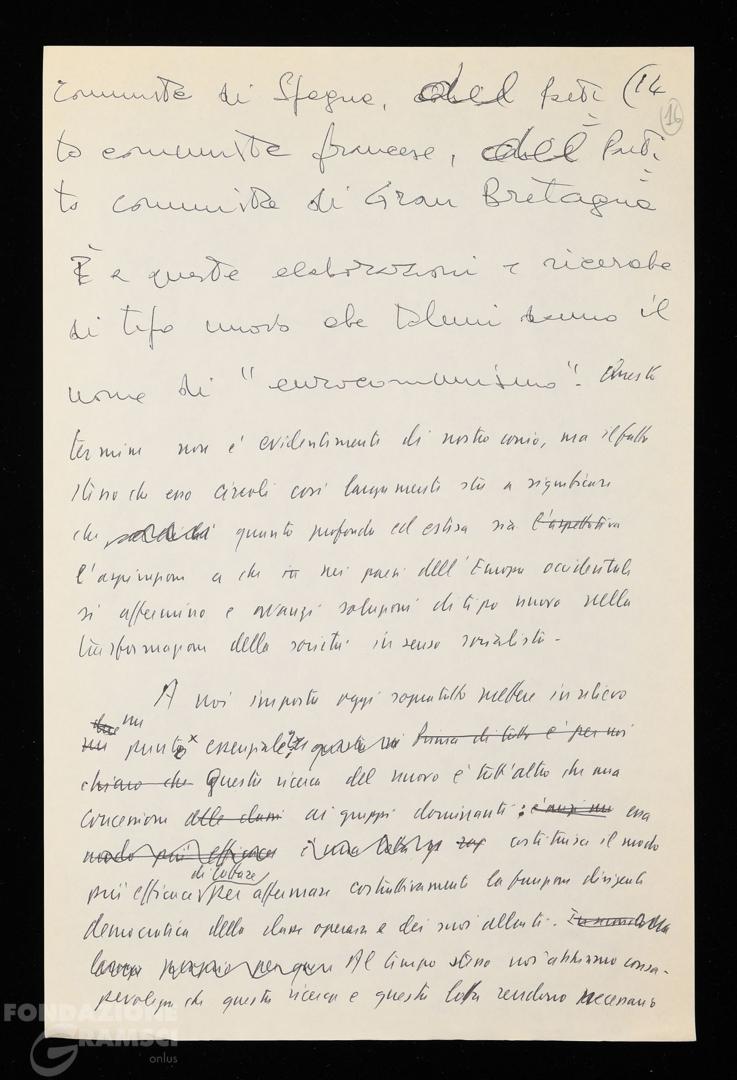 comunista di Spagna, del Parti- (14
16
to comunista francese, del Parti-
to comunista di Gran Bretagna
È a queste elaborazioni e ricerche
di tipo nuovo che taluni danno il
nome di "eurocomunismo". Questo
termine non è evidentemente di nostro conio, ma il fatto
stesso che esso circoli così largamente sta a significare
che quanto profonda ed estesa sia l'aspettativa
l'aspirazione a che nei paesi dell'Europa occidentale
si affermino e avanzi soluzioni di tipo nuovo nella
trasformazione della società in senso socialista -
A noi importa oggi soprattutto mettere in rilievo
un
un punto essenziale: questa Prima di tutto è per noi
chiaro che Questa ricerca del nuovo è tutt'altro che una
concessione alle classi ai gruppi dominanti: essa
modo più efficace costituisce il modo
di lottare
più efficace per affermare costruttivamente la funzione dirigente
democratica della classe operaia e dei suoi alleati.
Al tempo stesso noi abbiamo consa-
pevolezza che questa ricerca e questa lotta rendono necessario
FONDAZIONE
GRAMSCI
onlus